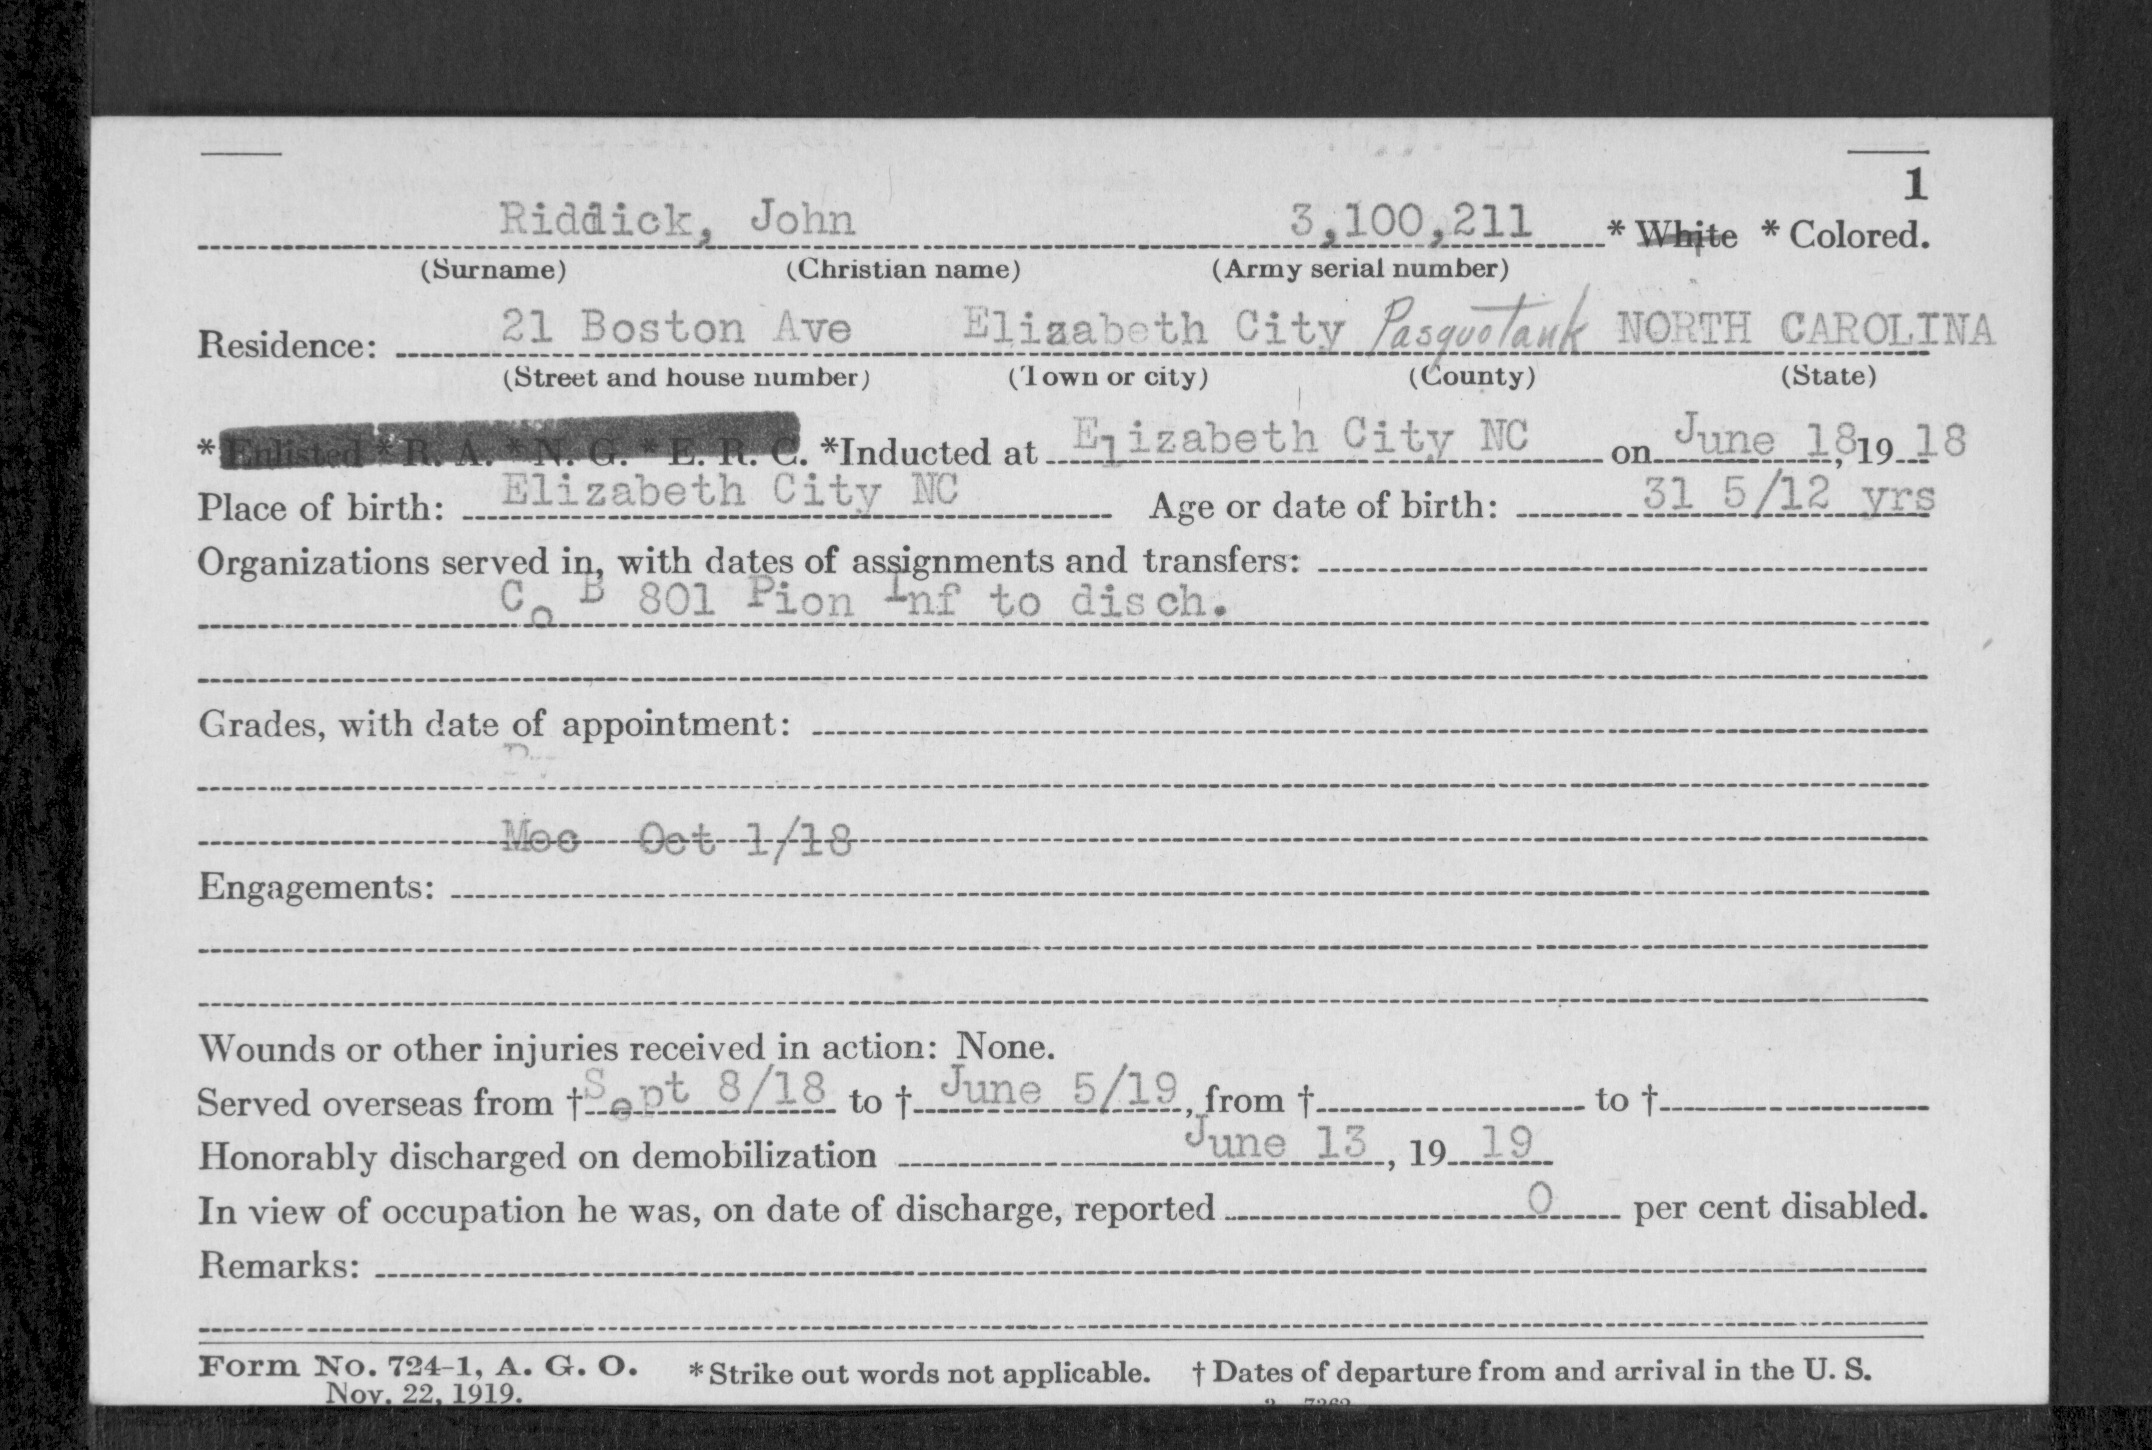 1
Riddick, John 3,100,211 * White * Colored.
(Surname) (Christian name) (Army serial number)
Residence: 21 Boston Ave Elizabeth City Pasquotank NORTH CAROLINA
(Street and house number) (Town or city) (County) (State)
*Enlisted * R. A. * N. G. * E. R. C. *Inducted at Elizabeth City NC on June 18, 19 18
Place of birth: Elizabeth City NC Age or date of birth: 31 5/12 yrs
Organizations served in, with dates of assignments and transfers:
Co B 801 Pion Inf to disch.
Grades, with date of appointment:
Mec Oct 1/18
Engagements:
Wounds or other injuries received in action: None.
Served overseas from † Sept 8/18 to † June 5/19, from † to †
Honorably discharged on demobilization June 13, 19 19
In view of occupation he was, on date of discharge, reported 0 per cent disabled.
Remarks:
Form No. 724-1, A. G. O. * Strike out words not applicable. † Dates of departure from and arrival in the U. S.
Nov. 22, 1919.